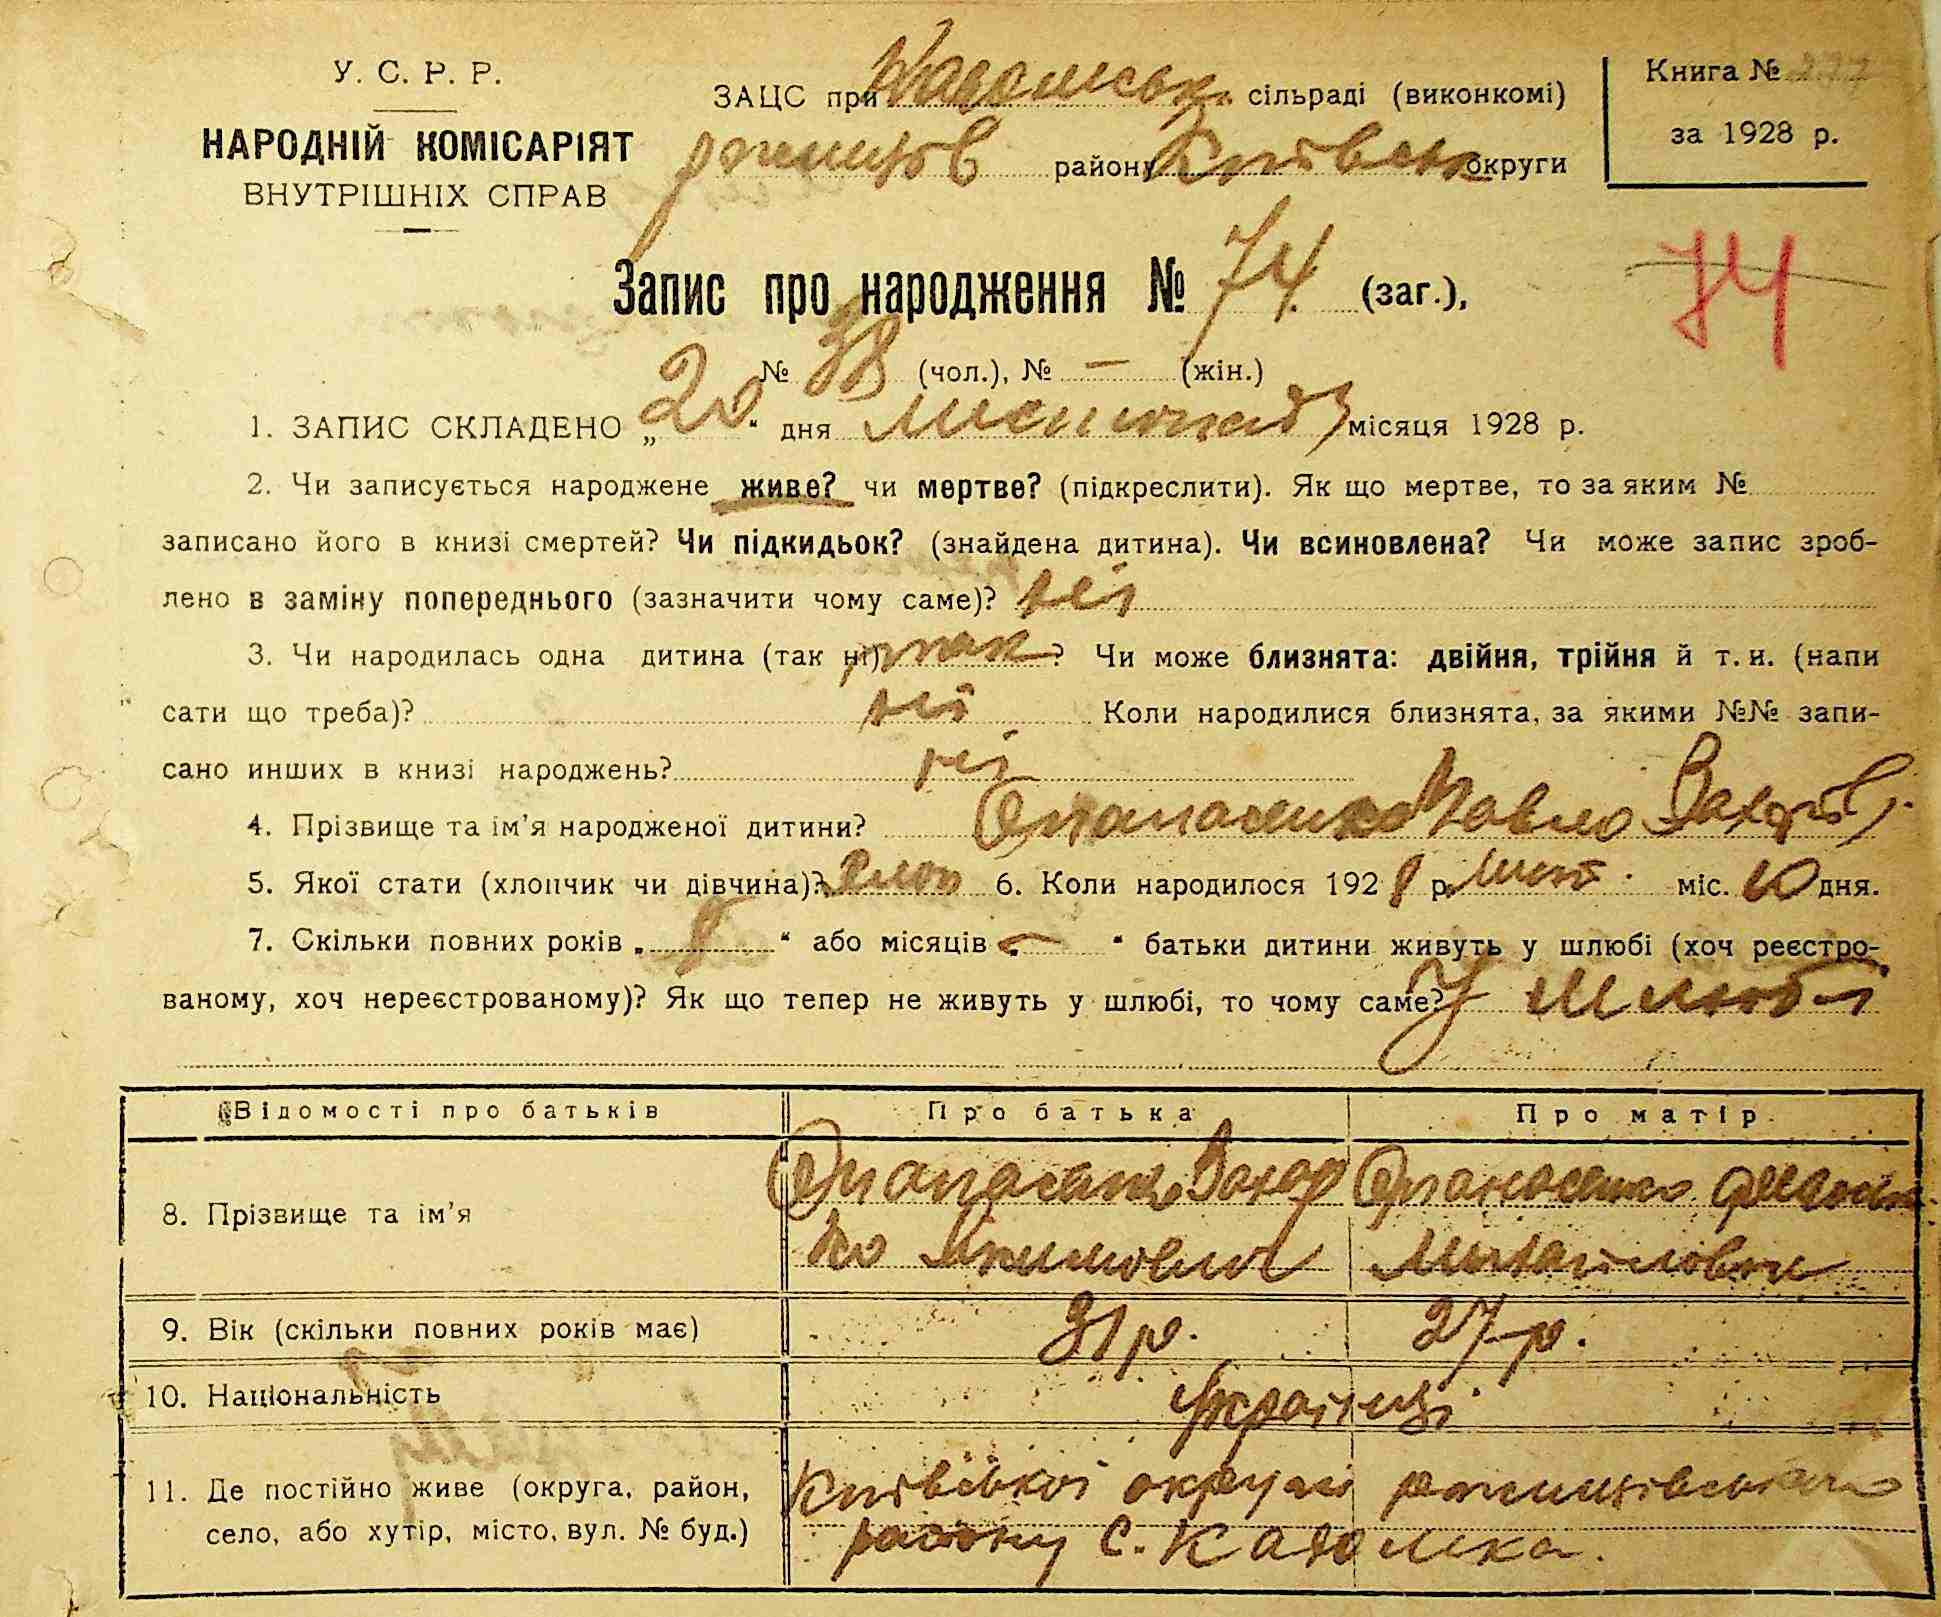 У. С. Р. Р.
НАРОДНІЙ КОМІСАРІЯТ
ВНУТРІШНІХ СПРАВ
ЗАЦС при сільраді (виконкомі)
ржищів району Київськ округи
Книга №
за 1928 р.
Запис про народження № 74 (заг.),
74
№ 38 (чол.), № — (жін.)
1. ЗАПИС СКЛАДЕНО „20“ дня листопада місяця 1928 р.
2. Чи записується народжене живе? чи мертве? (підкреслити). Як що мертве, то за яким №
записано його в книзі смертей? Чи підкидьок? (знайдена дитина). Чи всиновлена? Чи може запис зроб-
лено в заміну попереднього (зазначити чому саме)? ні
3. Чи народилась одна дитина (так ні) так? Чи може близнята: двійня, трійня й т. и. (напи
сати що треба)? ні Коли народилися близнята, за якими №№ запи-
сано инших в книзі народжень? ні
4. Прізвище та ім'я народженої дитини? Опанасенко Павло Захарів
5. Якої стати (хлопчик чи дівчина)? Хлоп 6. Коли народилося 1928 р. лист. міс. 10 дня.
7. Скільки повних років „8“ або місяців „—“ батьки дитини живуть у шлюбі (хоч реєстро-
ваному, хоч нереєстрованому)? Як що тепер не живуть у шлюбі, то чому саме? У Шлюбі
Відомості про батьків Про батька Про матір
8. Прізвище та ім'я Опанасенко Захар Якимович Опанасенко Михайловна
9. Вік (скільки повних років має) 31 р. 27 р.
10. Національність Українці
11. Де постійно живе (округа, район, Київської округи ржищівського
село, або хутір, місто, вул. № буд.) району С. Кадомка.